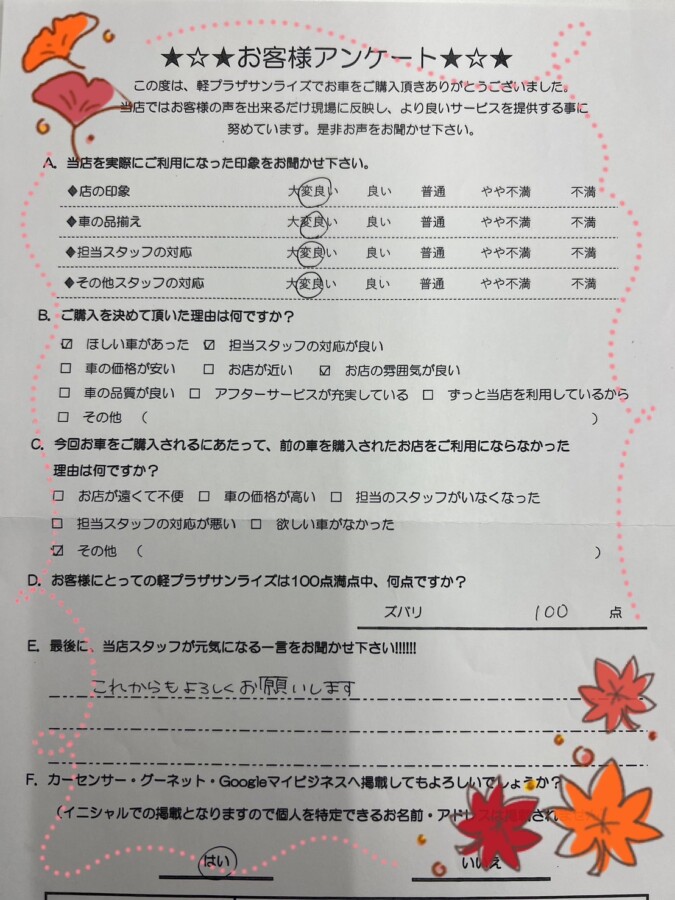 ★☆★お客様アンケート★☆★
この度は、軽プラザサンライズでお車をご購入頂きありがとうございました。
当店ではお客様の声を出来るだけ現場に反映し、より良いサービスを提供する事に
努めています。是非お声をお聞かせ下さい。
A. 当店を実際にご利用になった印象をお聞かせ下さい。
◆店の印象 大変良い 良い 普通 やや不満 不満
◆車の品揃え 大変良い 良い 普通 やや不満 不満
◆担当スタッフの対応 大変良い 良い 普通 やや不満 不満
◆その他スタッフの対応 大変良い 良い 普通 やや不満 不満
B. ご購入を決めて頂いた理由は何ですか？
☑ ほしい車があった ☑ 担当スタッフの対応が良い
□ 車の価格が安い □ お店が近い ☑ お店の雰囲気が良い
□ 車の品質が良い □ アフターサービスが充実している □ ずっと当店を利用しているから
□ その他 （ ）
C. 今回お車をご購入されるにあたって、前の車を購入されたお店をご利用にならなかった
理由は何ですか？
□ お店が遠くて不便 □ 車の価格が高い □ 担当のスタッフがいなくなった
□ 担当スタッフの対応が悪い □ 欲しい車がなかった
☑ その他 （ ）
D. お客様にとっての軽プラザサンライズは100点満点中、何点ですか？
ズバリ 100 点
E. 最後に、当店スタッフが元気になる一言をお聞かせ下さい!!!!!!
これからもよろしくお願いします
F. カーセンサー・グーネット・Googleマイビジネスへ掲載してもよろしいでしょうか？
（イニシャルでの掲載となりますので個人を特定できるお名前・アドレスは掲載され
はい いいえ